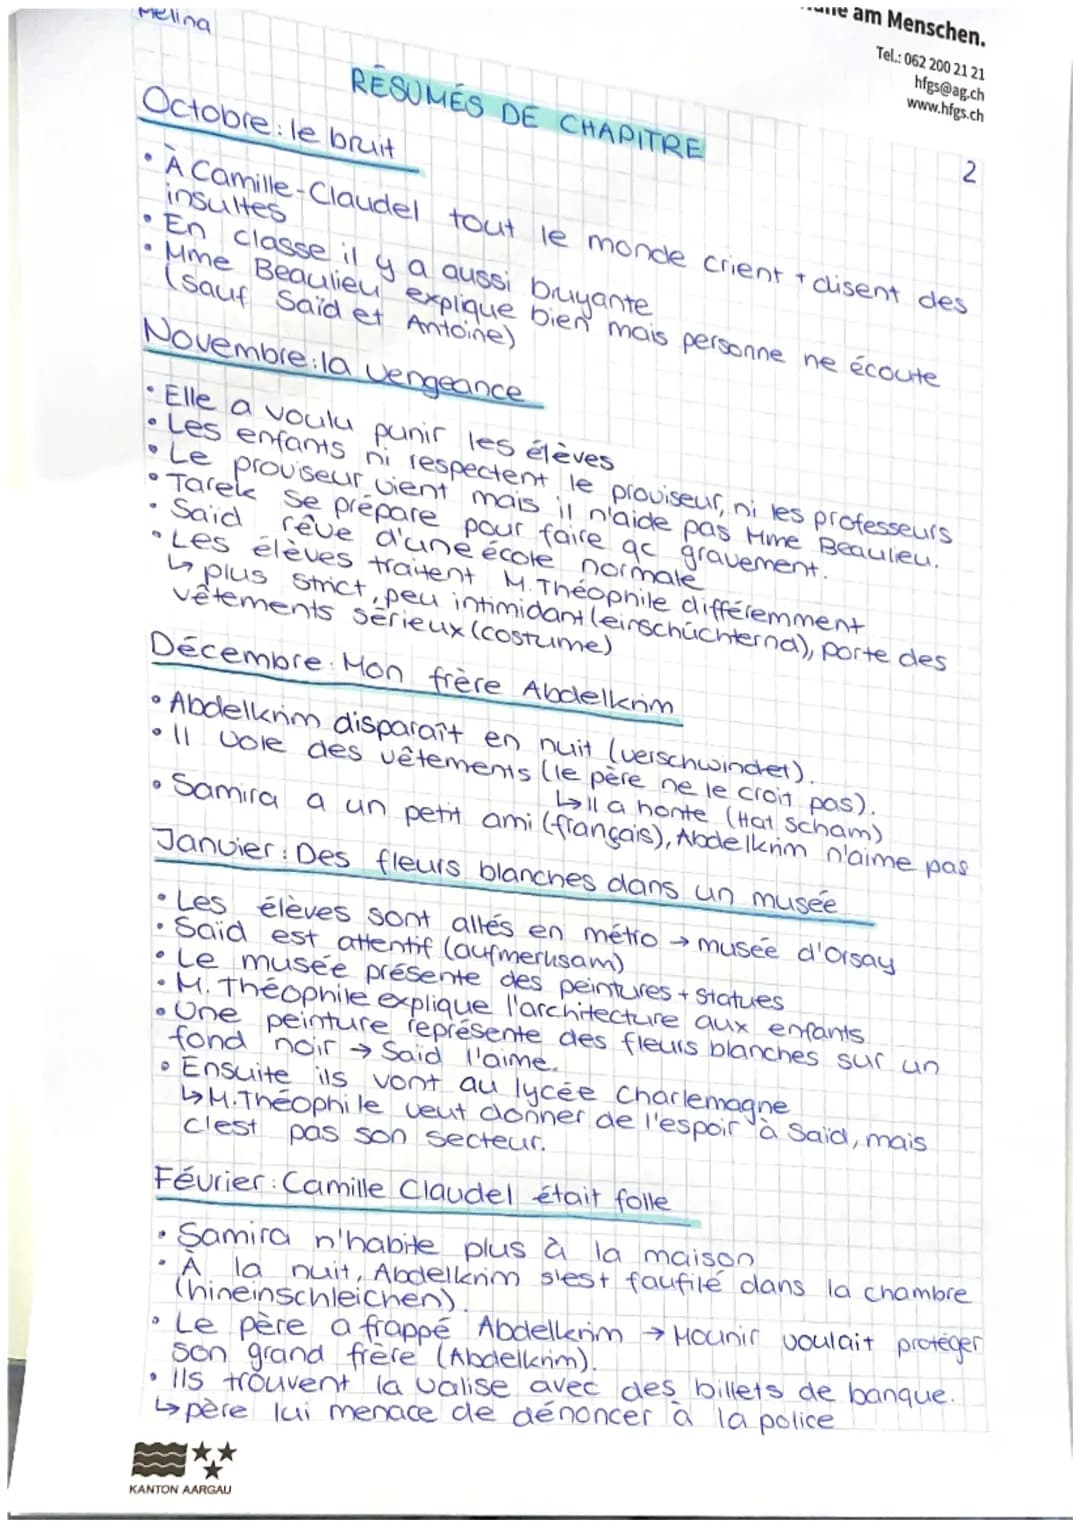 Melina
am Menschen.
Tel.: 062 200 21 21
hfgs@ag.ch
www.hfgs.ch
RÉSUMÉS DE CHAPITRE
2
Octobre: le bruit
• À Camille-Claudel tout le monde crient + disent des
insultes
• En classe il y a aussi bruyante
• Mme Beaulieu explique bien mais personne ne écoute
(sauf Saïd et Antoine)
Novembre: la vengeance
• Elle a voulu punir les élèves
• Les enfants ni respectent le proviseur, ni les professeurs
• Le proviseur vient mais il n'aide pas Mme Beaulieu.
• Tarek se prépare pour faire qc gravement.
• Saïd rêve d'une école normale
• Les élèves traitent M. Théophile différemment
↳ plus strict, peu intimidant (einschüchternd), porte des
vêtements sérieux (costume)
Décembre: Mon frère Abdelkrim
• Abdelkrim disparaît en nuit (verschwindet).
• Il vole des vêtements (le père ne le croit pas).
↳ Il a honte (Hat Scham)
• Samira a un petit ami (français), Abdelkrim n'aime pas
Janvier: Des fleurs blanches dans un musée
• Les élèves sont allés en métro → musée d'Orsay
• Saïd est attentif (aufmerksam)
• Le musée présente des peintures + statues
• M. Théophile explique l'architecture aux enfants
• Une peinture représente des fleurs blanches sur un
fond noir → Saïd l'aime.
• Ensuite ils vont au lycée Charlemagne
↳ M. Théophile veut donner de l'espoir à Saïd, mais
c'est pas son secteur.
Février: Camille Claudel était folle
• Samira n'habite plus à la maison
• À la nuit, Abdelkrim s'est faufilé dans la chambre
(hineinschleichen).
• Le père a frappé Abdelkrim → Mounir voulait protéger
son grand frère (Abdelkrim).
• Ils trouvent la valise avec des billets de banque.
↳ père lui menace de dénoncer à la police
KANTON AARGAU